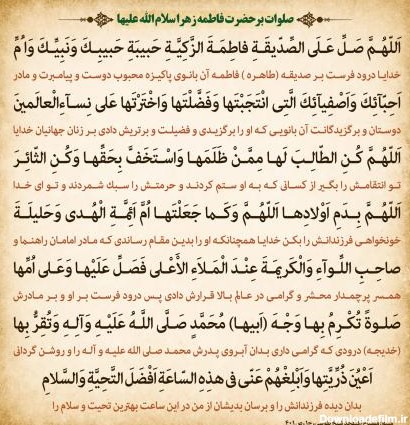 صلوات بر حضرت فاطمه زهرا سلام الله علیها
اَللّهُمَّ صَلِّ عَلَی الصِّدّیقَةِ فاطِمَةَ الزَّکِیَّةِ حَبیبَةِ حَبیبِكَ وَنَبِیِّكَ وَاُمِّ
خدایا درود فرست بر صدیقه (طاهره) فاطمه آن بانوی پاکیزه محبوب دوست و پیامبرت و مادر
اَحِبّآئِكَ وَاَصْفِیآئِكَ الَّتِی انْتَجَبْتَها وَفَضَّلْتَها وَاخْتَرْتَها عَلی نِسآءِ الْعالَمینَ
دوستان و برگزیدگانت آن بانویی که او را برگزیدی و فضیلت و برتریش دادی بر زنان جهانیان خدایا
اَللّهُمَّ کُنِ الطّالِبَ لَها مِمَّنْ ظَلَمَها وَاسْتَخَفَّ بِحَقِّها وَکُنِ الثّائِرَ
تو انتقامش را بگیر از کسانی که به او ستم کردند و حرمتش را سبك شمردند و تو ای خدا
اَللّهُمَّ بِدَمِ اَوْلادِها اَللّهُمَّ وَکَما جَعَلْتَها اُمَّ اَئِمَّةِ الْهُدی وَحَلیلَةَ
خونخواهی فرزندانش را بکن خدایا همچنانکه او را بدین مقام رساندی که مادر امامان راهنما و
صاحِبِ اللِّوآءِ وَالْکَریمَةَ عِنْدَ الْمَلَاءِ الْأَعْلی فَصَلِّ عَلَیْها وَعَلی اُمِّها
همسر پرچمدار محشر و گرامی در عالم بالا قرارش دادی پس درود فرست بر او و بر مادرش
صَلوةً تُکْرِمُ بِها وَجْهَ (اَبیها) مُحَمَّدٍ صَلَّی اللَّهُ عَلَیْهِ وَآلِهِ وَتُقِرُّ بِها
(خدیجه) درودی که گرامی داری بدان آبروی پدرش محمد صلی الله علیه و آله را و روشن گردانی
اَعْیُنَ ذُرِّیَّتِها وَاَبْلِغْهُمْ عَنّی فی هذِهِ السّاعَةِ اَفْضَلَ التَّحِیَّةِ وَالسَّلامِ
بدان دیده فرزندانش را و برسان بدیشان از من در این ساعت بهترین تحیت و سلام را
Downloadefilm.ir